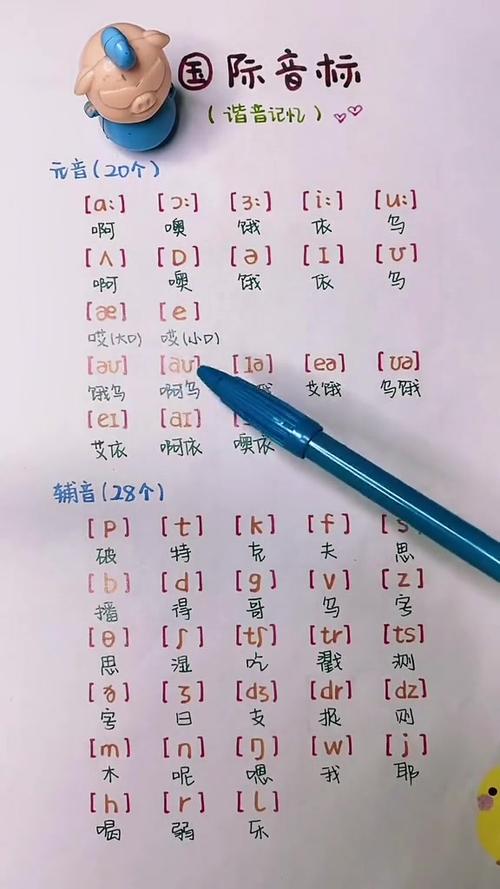 国际音标
(谐音记忆)
元音(20个)
[ɑ:] [ɔ:] [ɜ:] [i:] [u:]
啊 噢 饿 依 乌
[ʌ] [ɒ] [ə] [ɪ] [ʊ]
啊 噢 饿 依 乌
[æ] [e]
哎(大口) 哎(小口)
[əʊ] [aʊ] [ɪə] [eə] [ʊə]
饿乌 啊乌 饿 艾饿 乌饿
[eɪ] [aɪ]
艾依 啊依 噢依
辅音(28个)
[p] [t] [k] [f] [s]
破 特 克 夫 思
[b] [d] [g] [v] [z]
播 得 哥 乌 字
[θ] [ʃ] [tʃ] [tr] [ts]
思 湿 吃 戳 测
[ð] [ʒ] [dʒ] [dr] [dz]
字 日 支 捉 则
[m] [n] [ŋ] [w] [j]
木 呢 嗯 我 耶
[h] [r] [l]
喝 弱 乐